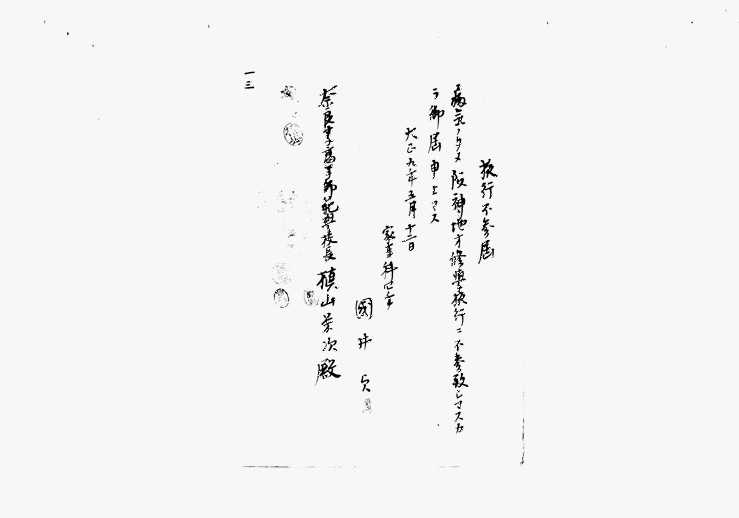 旅行不参届
病気ノタメ阪神地方修学旅行ニ不参致シマスカ
ラ御届申上マス
大正九年五月十二日
家事科
國井
奈良女高等師範學校長 槇山榮次殿
一三